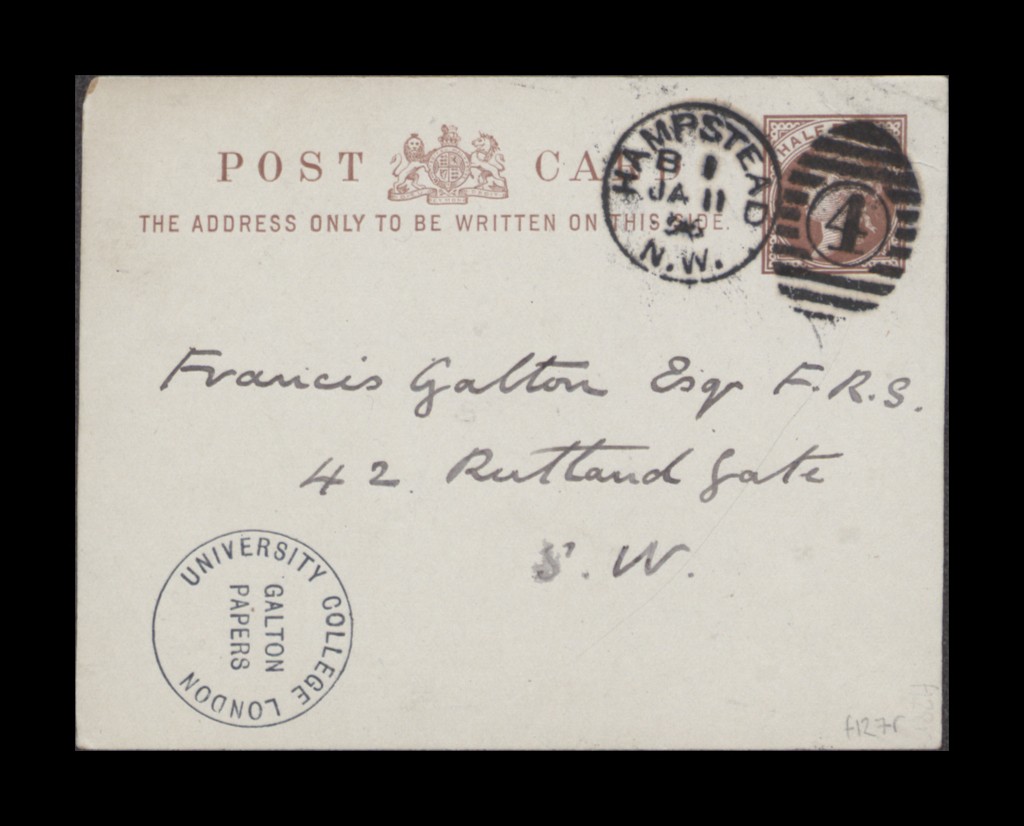 POST CARD
THE ADDRESS ONLY TO BE WRITTEN ON THIS SIDE.
HAMPSTEAD
B 1
JA 11
96
N.W.
HALF
4
Francis Galton Esqr F.R.S.
42 Rutland Gate
S. W.
UNIVERSITY COLLEGE LONDON
GALTON
PAPERS
f127r